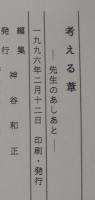 考える葦
―先生のあしあと―
一九九六年二月十二日 印刷・発行
編集 神谷和正
発行